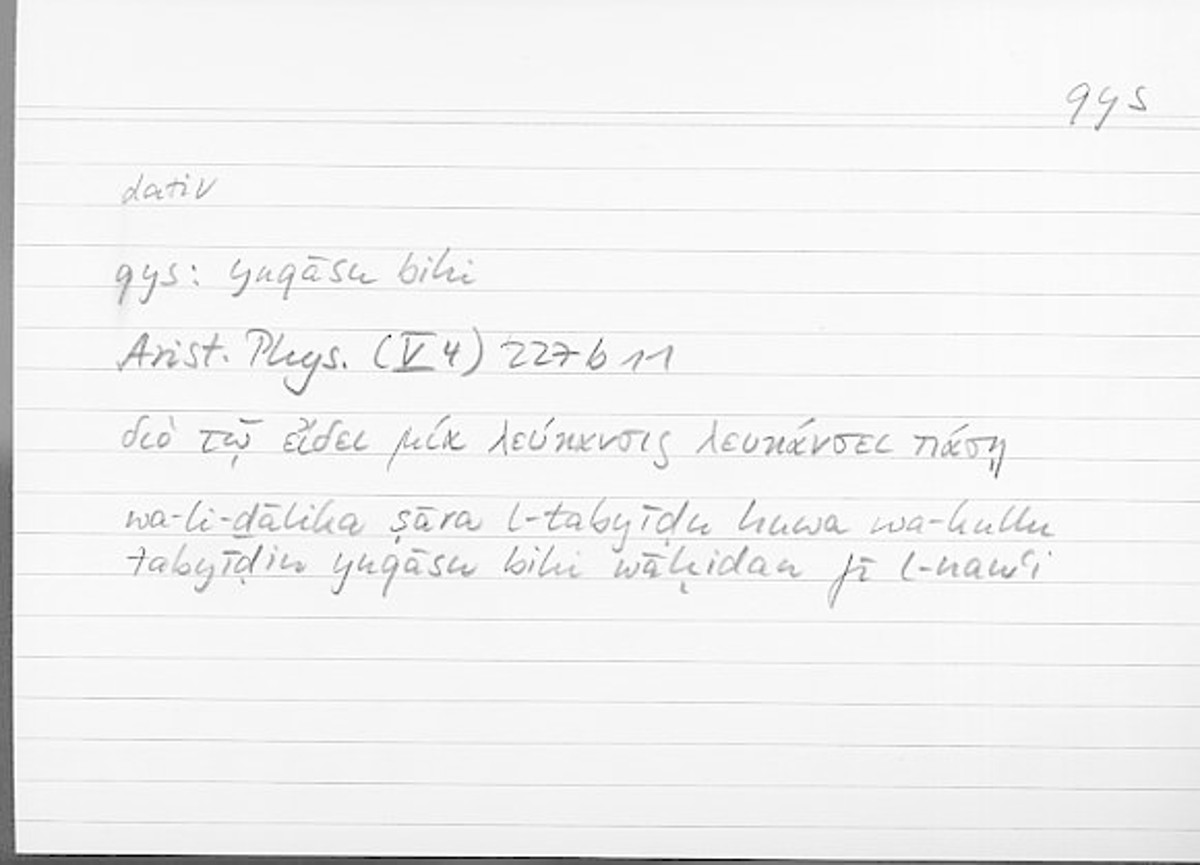 qys
dativ
qys: yuqāsu bihi
Arist. Phys. (V 4) 227b11
διὸ τῷ εἴδει μία λεύκανσις λευκάνσει πάσῃ
wa-li-ḏālika ṣāra l-tabyīḍu huwa wa-kullu
tabyīḍin yuqāsu bihi wāḥidan fī l-nawʿi